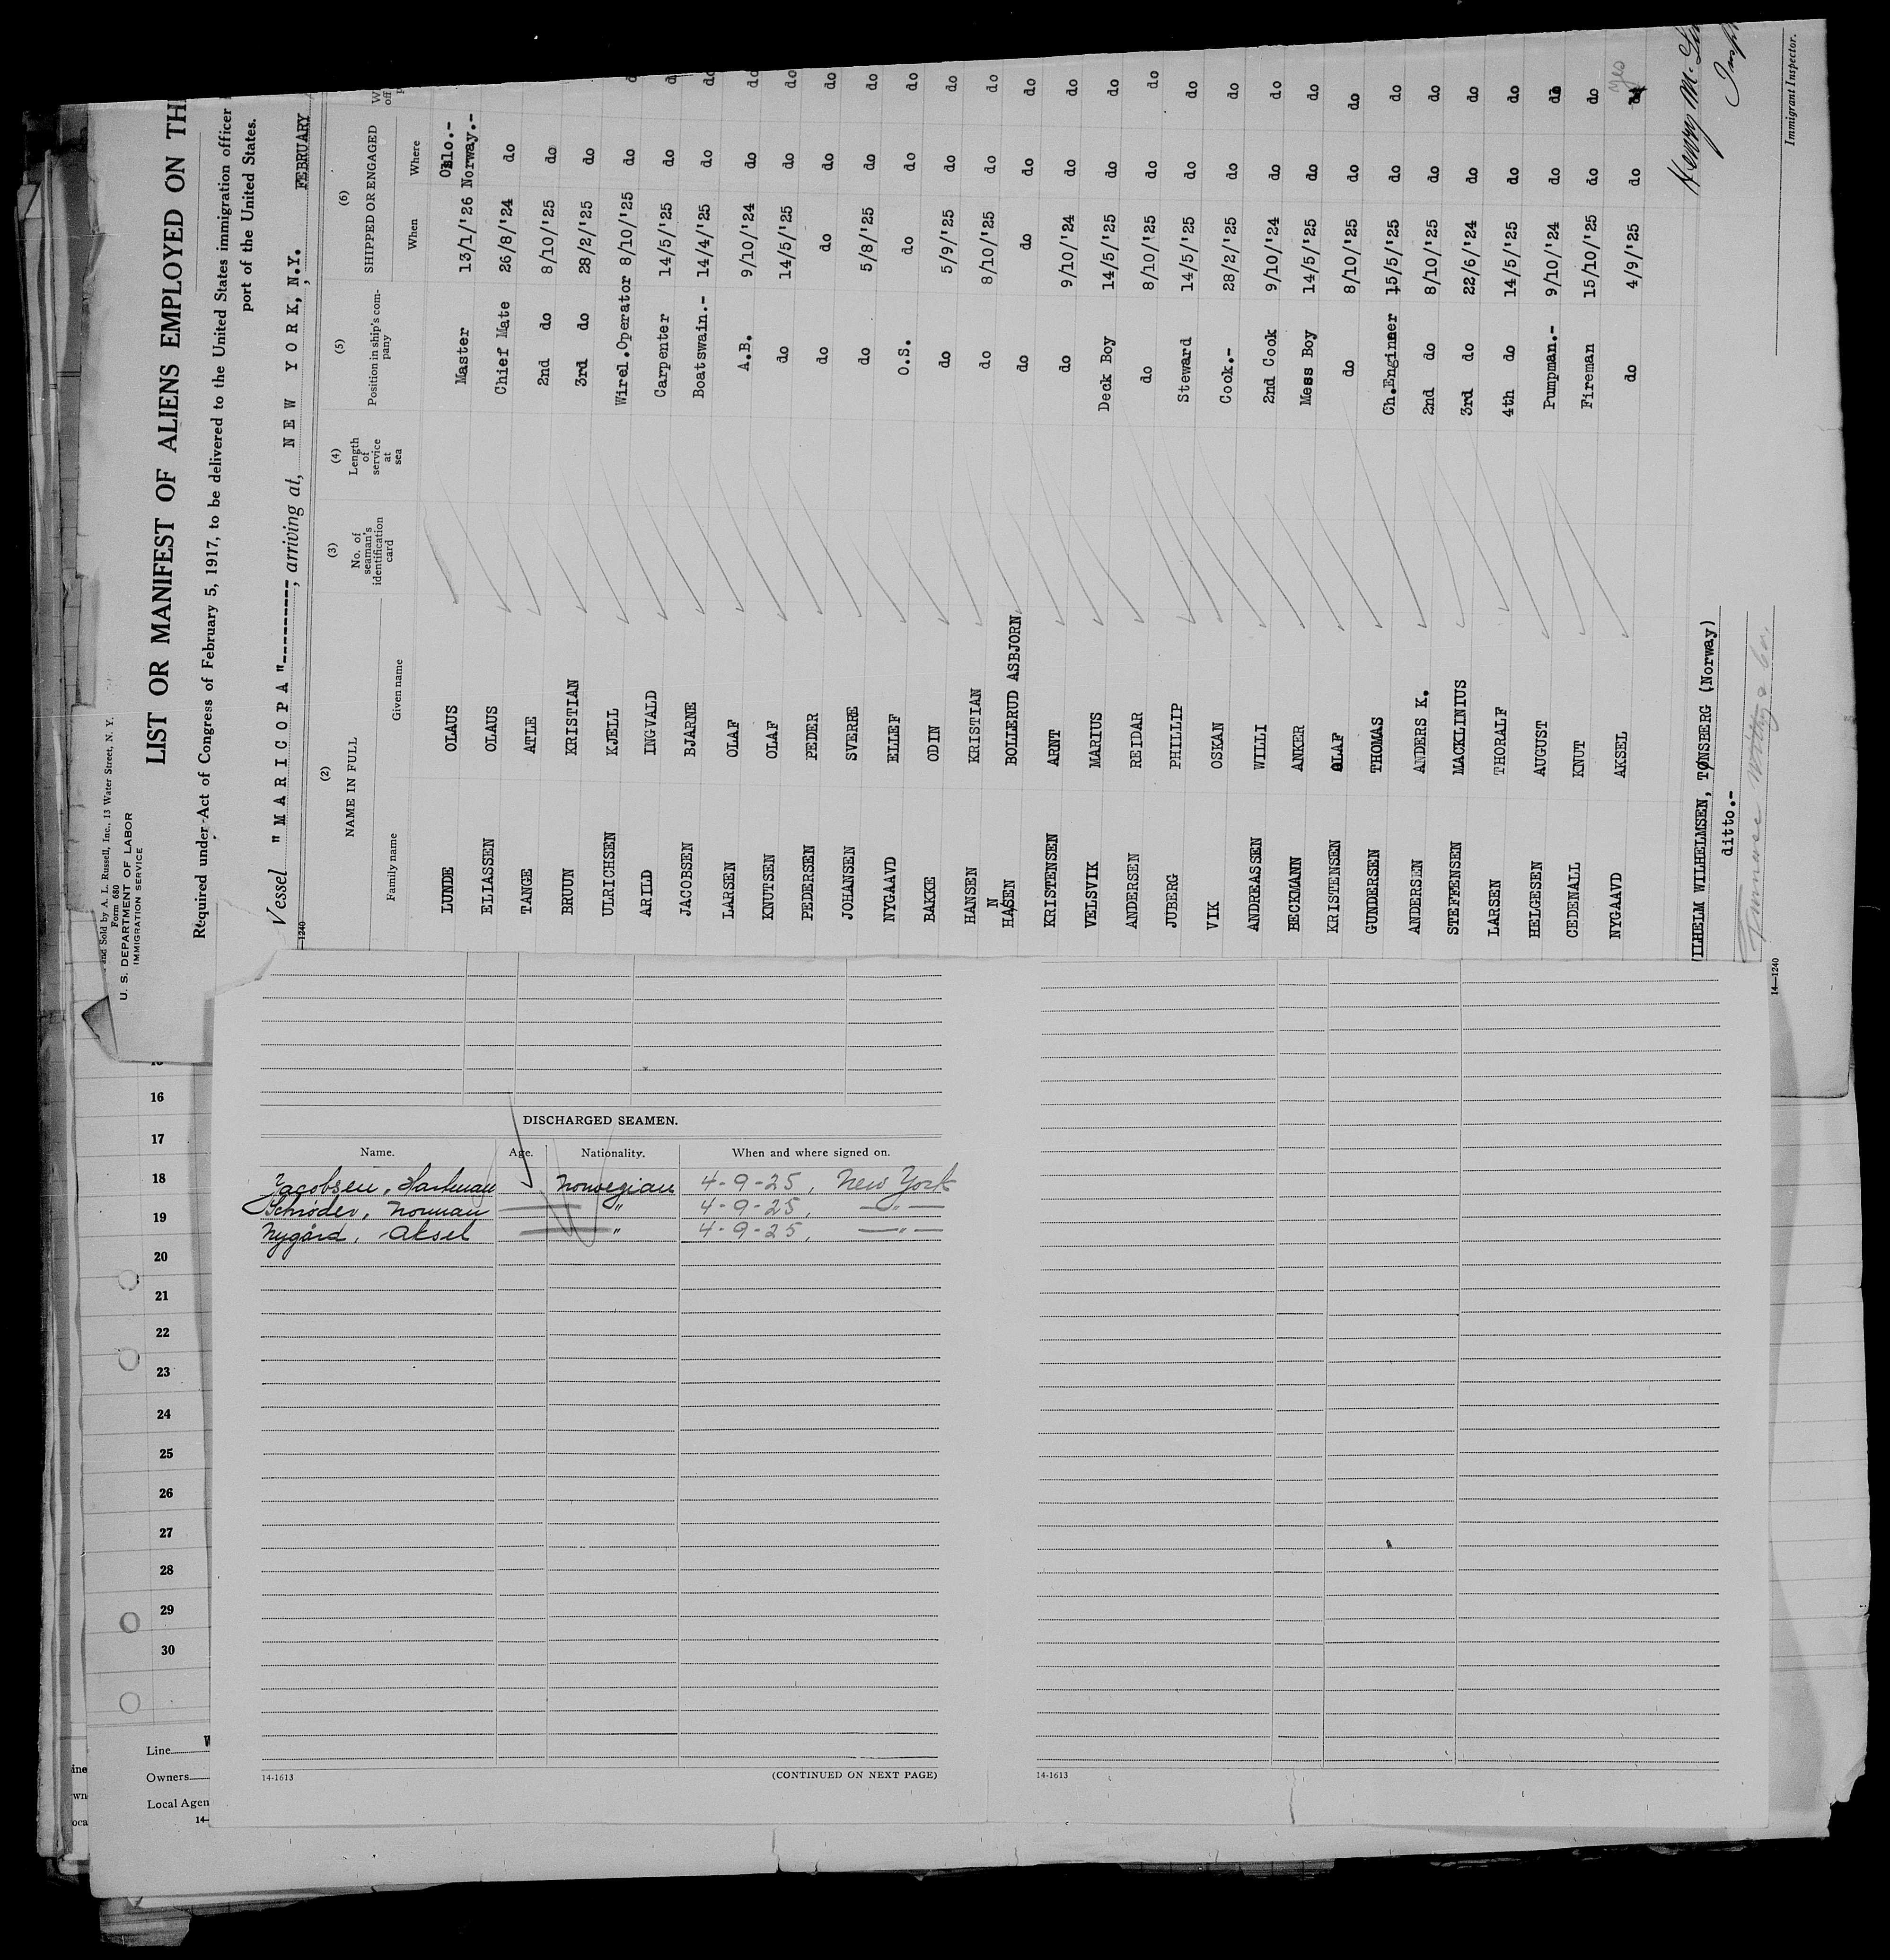 and Sold by A. L. Russell, Inc., 13 Water Street, N. Y.
Form 680
U. S. DEPARTMENT OF LABOR
IMMIGRATION SERVICE
LIST OR MANIFEST OF ALIENS EMPLOYED ON TH
Required under Act of Congress of February 5, 1917, to be delivered to the United States immigration officer
port of the United States.
Vessel "MARICOPA"----------, arriving at, NEW YORK, N.Y. , FEBRUARY
14—1240
(2) (3) (4) (5) (6)
NAME IN FULL No. of seaman's identification card Length of service at sea Position in ship's company SHIPPED OR ENGAGED
Family name Given name When Where
LUNDE OLAUS Master 13/1/'26 Oslo.- Norway.-
ELIASSEN OLAUS Chief Mate 26/8/'24 do
TANGE ATLE 2nd do 8/10/'25 do
BRUUN KRISTIAN 3rd do 28/2/'25 do
ULRICHSEN KJELL Wirel.Operator 8/10/'25 do
ARILD INGVALD Carpenter 14/5/'25 do do
JACOBSEN BJARNE Boatswain.- 14/4/'25 do do
LARSEN OLAF A.B. 9/10/'24 do do
KNUTSEN OLAF do 14/5/'25 do do
PEDERSEN PEDER do do do do
JOHANSEN SVERRE do 5/8/'25 do do
NYGAAVD ELLEF O.S. do do do
BAKKE ODIN do 5/9/'25 do do
HANSEN KRISTIAN do 8/10/'25 do do
HANSEN BOLLERUD ASBJORN do do do do
KRISTENSEN ARNT do 9/10/'24 do do
VELSVIK MARIUS Deck Boy 14/5/'25 do do
ANDERSEN REIDAR do 8/10/'25 do do
JUBERG PHILLIP Steward 14/5/'25 do do
VIK OSKAN Cook.- 28/2/'25 do do
ANDREASSEN WILLI 2nd Cook 9/10/'24 do do
BECKMANN ANKER Mess Boy 14/5/'25 do do
KRISTENSEN OLAF do 8/10/'25 do do
GUNDERSEN THOMAS Ch.Enginner 15/5/'25 do do
ANDERSEN ANDERS K. 2nd do 8/10/'25 do do
STEFFENSEN MACKLINIUS 3rd do 22/6/'24 do do
LARSEN THORALF 4th do 14/5/'25 do do
HELGESEN AUGUST Pumpman.- 9/10/'24 do do
CEDENALL KNUT Fireman 15/10/'25 do do
NYGAAVD AKSEL do 4/9/'25 do yes
WILHELM WILHELMSEN, TØNSBERG (Norway)
ditto.-
Henry M.
Immigrant Inspector.
14—1240
16
17
18
19
20
21
22
23
24
25
26
27
28
29
30
Line
Owners
Local Agen
14—
DISCHARGED SEAMEN.
Name. Age. Nationality. When and where signed on.
Jacobsen, Hartman Norwegian 4-9-25, New York
Schrøder, Norman " 4-9-25, —"—
Nygård, Aksel " 4-9-25, —"—
14-1613 (CONTINUED ON NEXT PAGE)
14-1613